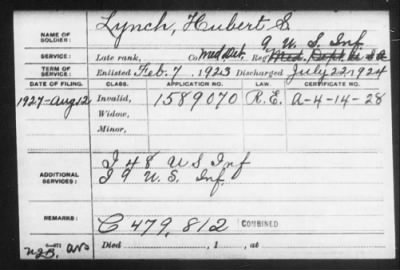 NAME OF SOLDIER: Lynch, Hubert S
9 U. S. Inf
SERVICE: Late rank, Co. Med Det, Reg't Med. Dept.
TERM OF SERVICE: Enlisted Feb. 7, 1923 Discharged July 22 1924
DATE OF FILING. CLASS. APPLICATION NO. LAW. CERTIFICATE NO.
1927-Aug 12 Invalid, 1589070 R.E. A-4-14-28
Widow,
Minor,
ADDITIONAL SERVICES: I 48 U S Inf
I 9 U. S. Inf.
REMARKS: C 479,812 COMBINED
Died , 1 , at